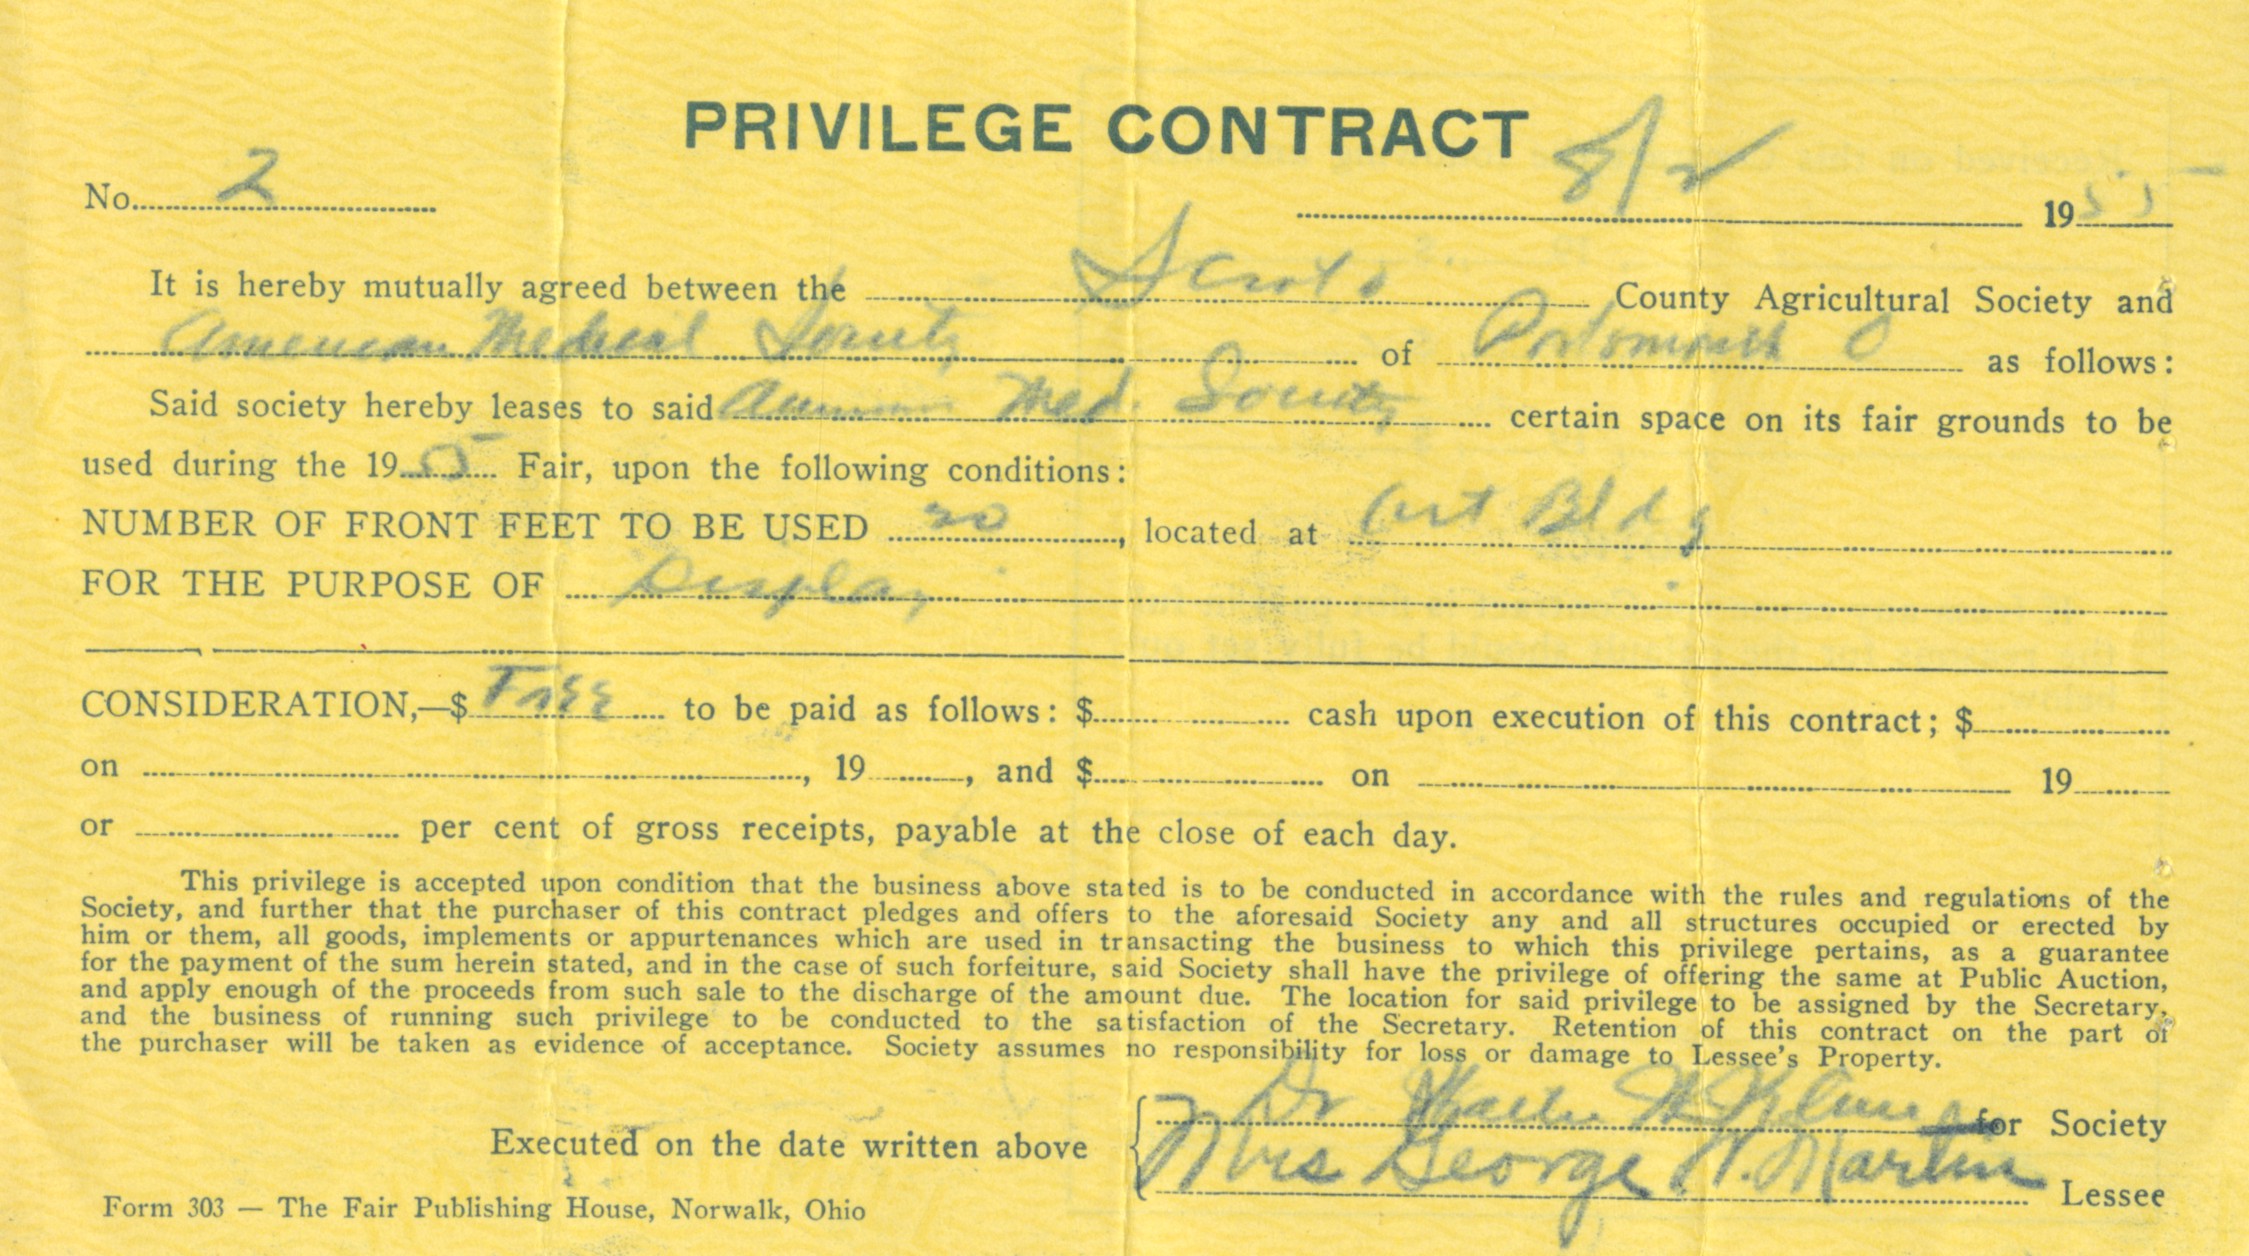 PRIVILEGE CONTRACT
No. 2 8/2 1955
It is hereby mutually agreed between the Scioto County Agricultural Society and
American Medical Society of Portsmouth O as follows:
Said society hereby leases to said Med. Society certain space on its fair grounds to be
used during the 195 Fair, upon the following conditions:
NUMBER OF FRONT FEET TO BE USED 20, located at Art Bldg
FOR THE PURPOSE OF Display
CONSIDERATION,—$ Free to be paid as follows: $ cash upon execution of this contract; $
on , 19 , and $ on 19
or per cent of gross receipts, payable at the close of each day.
This privilege is accepted upon condition that the business above stated is to be conducted in accordance with the rules and regulations of the
Society, and further that the purchaser of this contract pledges and offers to the aforesaid Society any and all structures occupied or erected by
him or them, all goods, implements or appurtenances which are used in transacting the business to which this privilege pertains, as a guarantee
for the payment of the sum herein stated, and in the case of such forfeiture, said Society shall have the privilege of offering the same at Public Auction,
and apply enough of the proceeds from such sale to the discharge of the amount due. The location for said privilege to be assigned by the Secretary,
and the business of running such privilege to be conducted to the satisfaction of the Secretary. Retention of this contract on the part of
the purchaser will be taken as evidence of acceptance. Society assumes no responsibility for loss or damage to Lessee's Property.
Dr for Society
Executed on the date written above
Mrs George W. Martin Lessee
Form 303 — The Fair Publishing House, Norwalk, Ohio